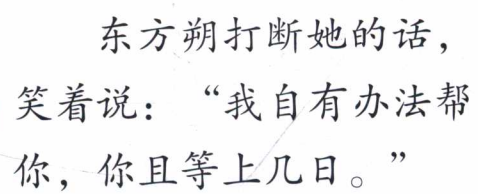 东方朔打断她的话，
笑着说：“我自有办法帮
你，你且等上几日。”